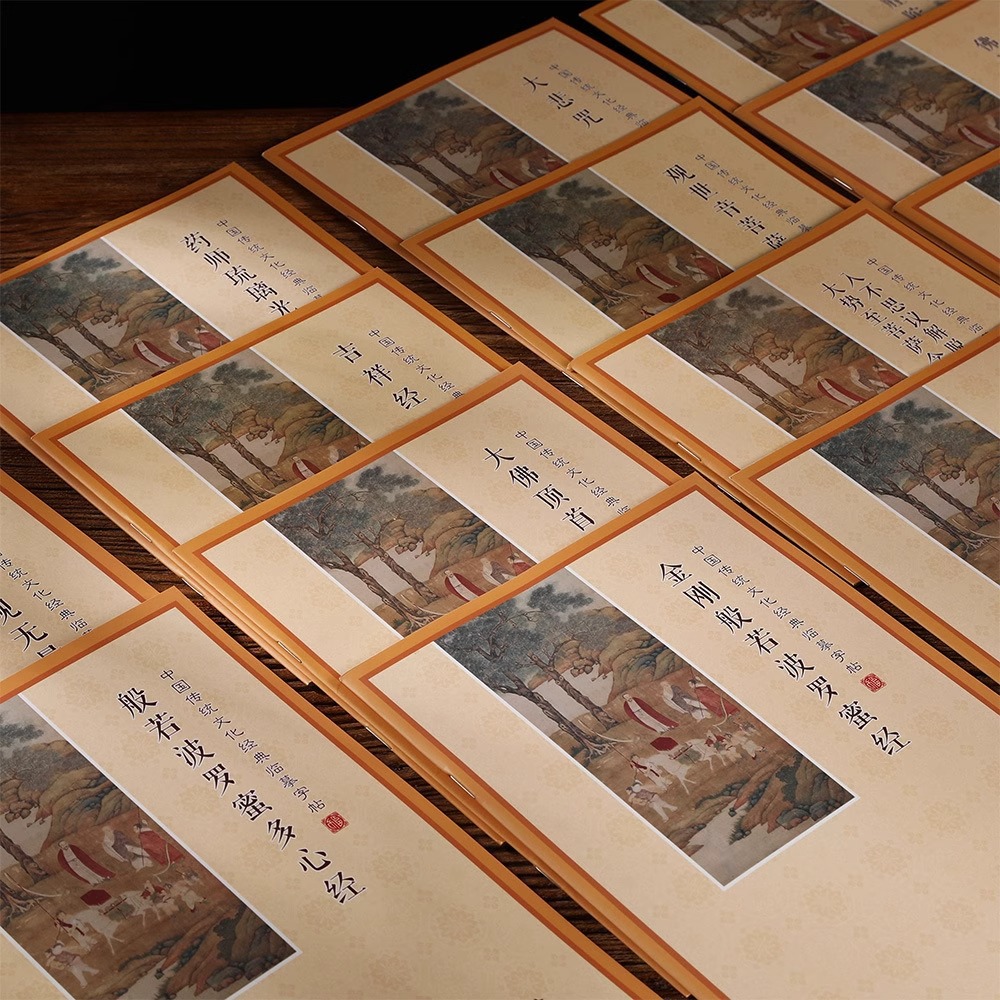 大悲咒
中国传统文化经典临
观世音菩萨
中国传统文化经典临
药师琉璃光
中国传统文化经典临
大势至菩萨
入不思议解
中国传统文化经典临
吉祥经
中国传统文化经典
大佛顶首
中国传统文化经典临
金刚般若波罗蜜经
中国传统文化经典临摹字帖
般若波罗蜜多心经
中国传统文化经典临摹字帖
传统文化经典临
佛